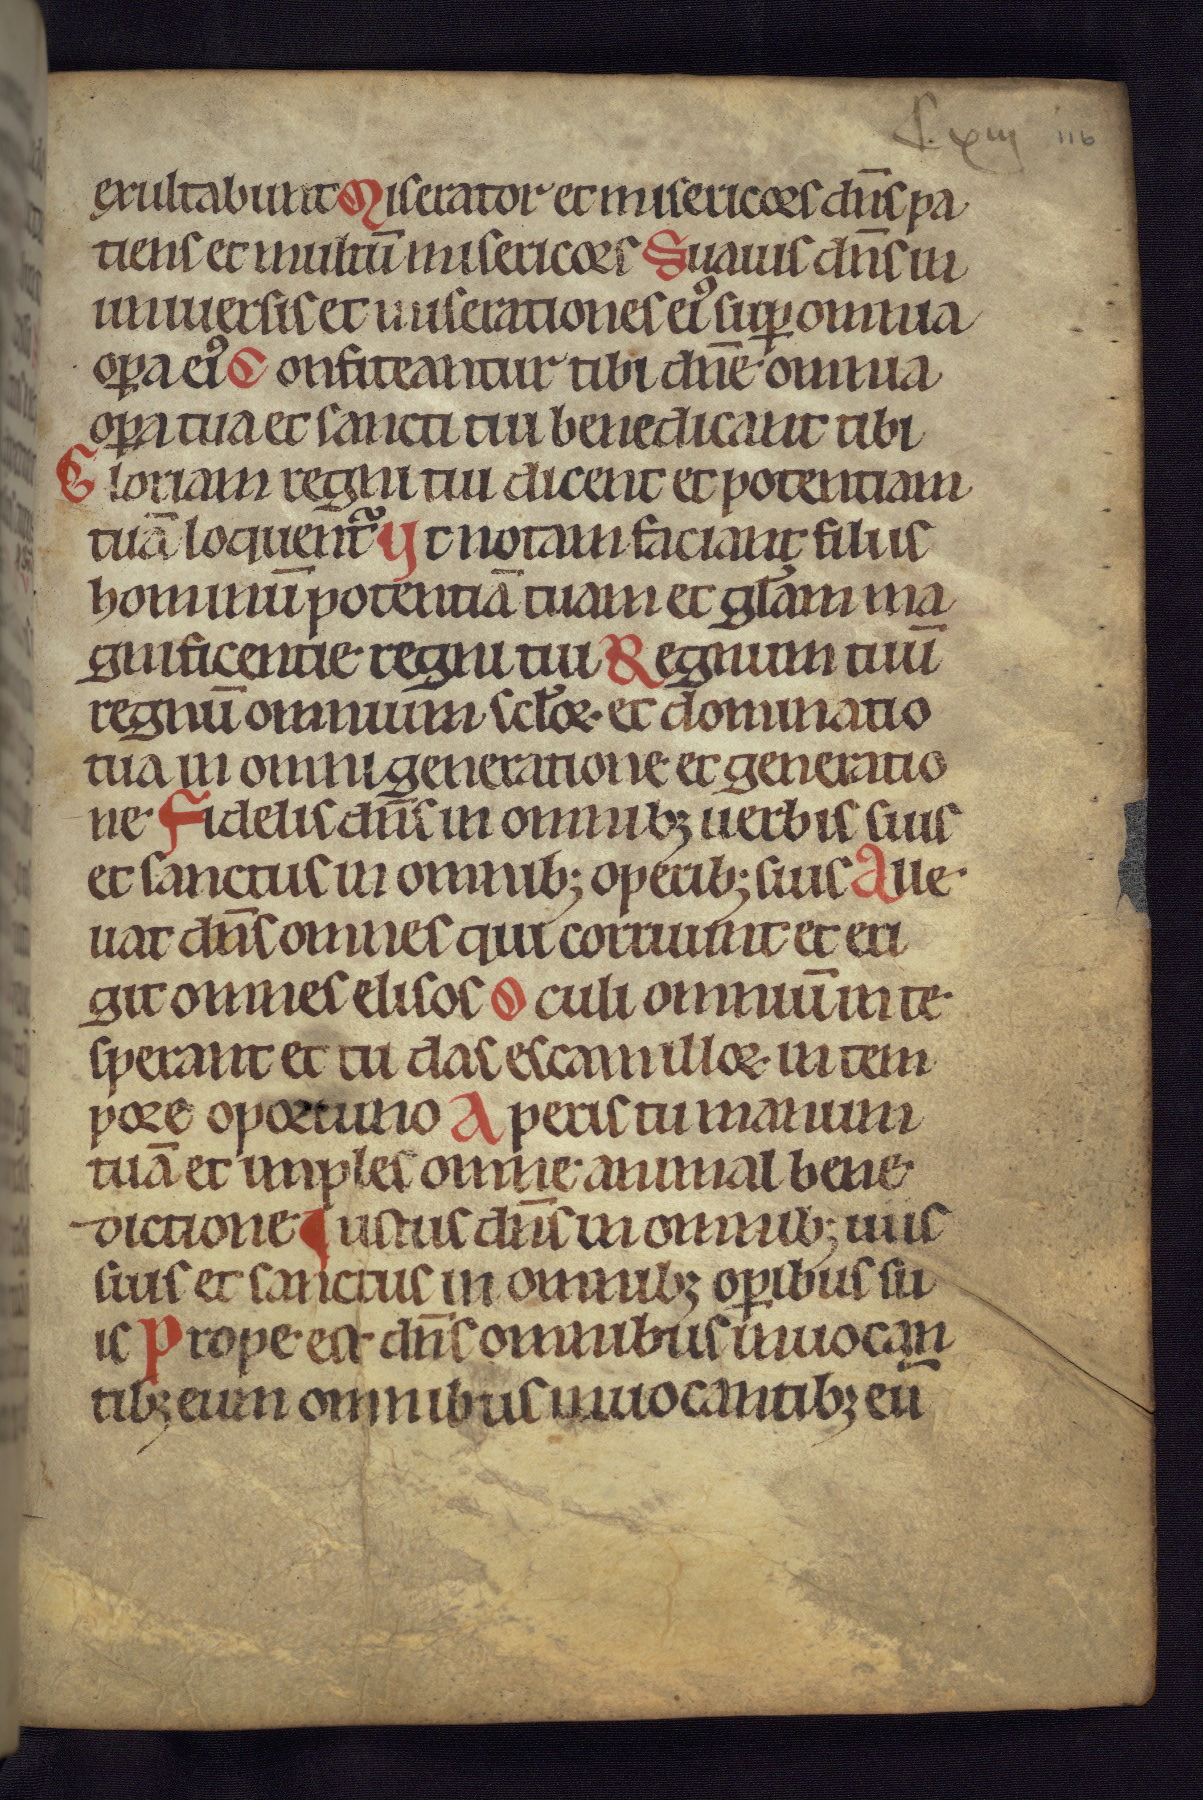 116
exultabunt Miserator et misericors dn̄s pa
tiens et multū misericors Suauis dn̄s in
uniuersis et miserationes eiꝰ suꝑ omnia
oꝑa eiꝰ Confiteantur tibi dn̄e omnia
oꝑa tua et sancti tui benedicant tibi
Gloriam regni tui dicent et potentiam
tuā loquent᷑ Vt notam faciant filiis
hominū potentiā tuam et gl̄am ma
gnificentie regni tui Regnum tuū
regnū omnium sclꝝ et dominatio
tua in omni generatione et generatio
ne Fidelis dn̄s in omnibꝫ uerbis suis
et sanctus in omnib; operib; suis Alle
uat dn̄s omnes qui corruunt et eri
git omnes elisos Oculi omniū in te
sperant et tu das escam illoꝝ in tem
pore oportuno Aperis tu manum
tuā et imples omne animal bene
dictione Iustus dn̄s in omnib; uiis
suis et sanctus in omnibꝫ oꝑibus su
is Prope est dn̄s omnibus inuocan
tibꝫ eum omnibus inuocantibꝫ eū